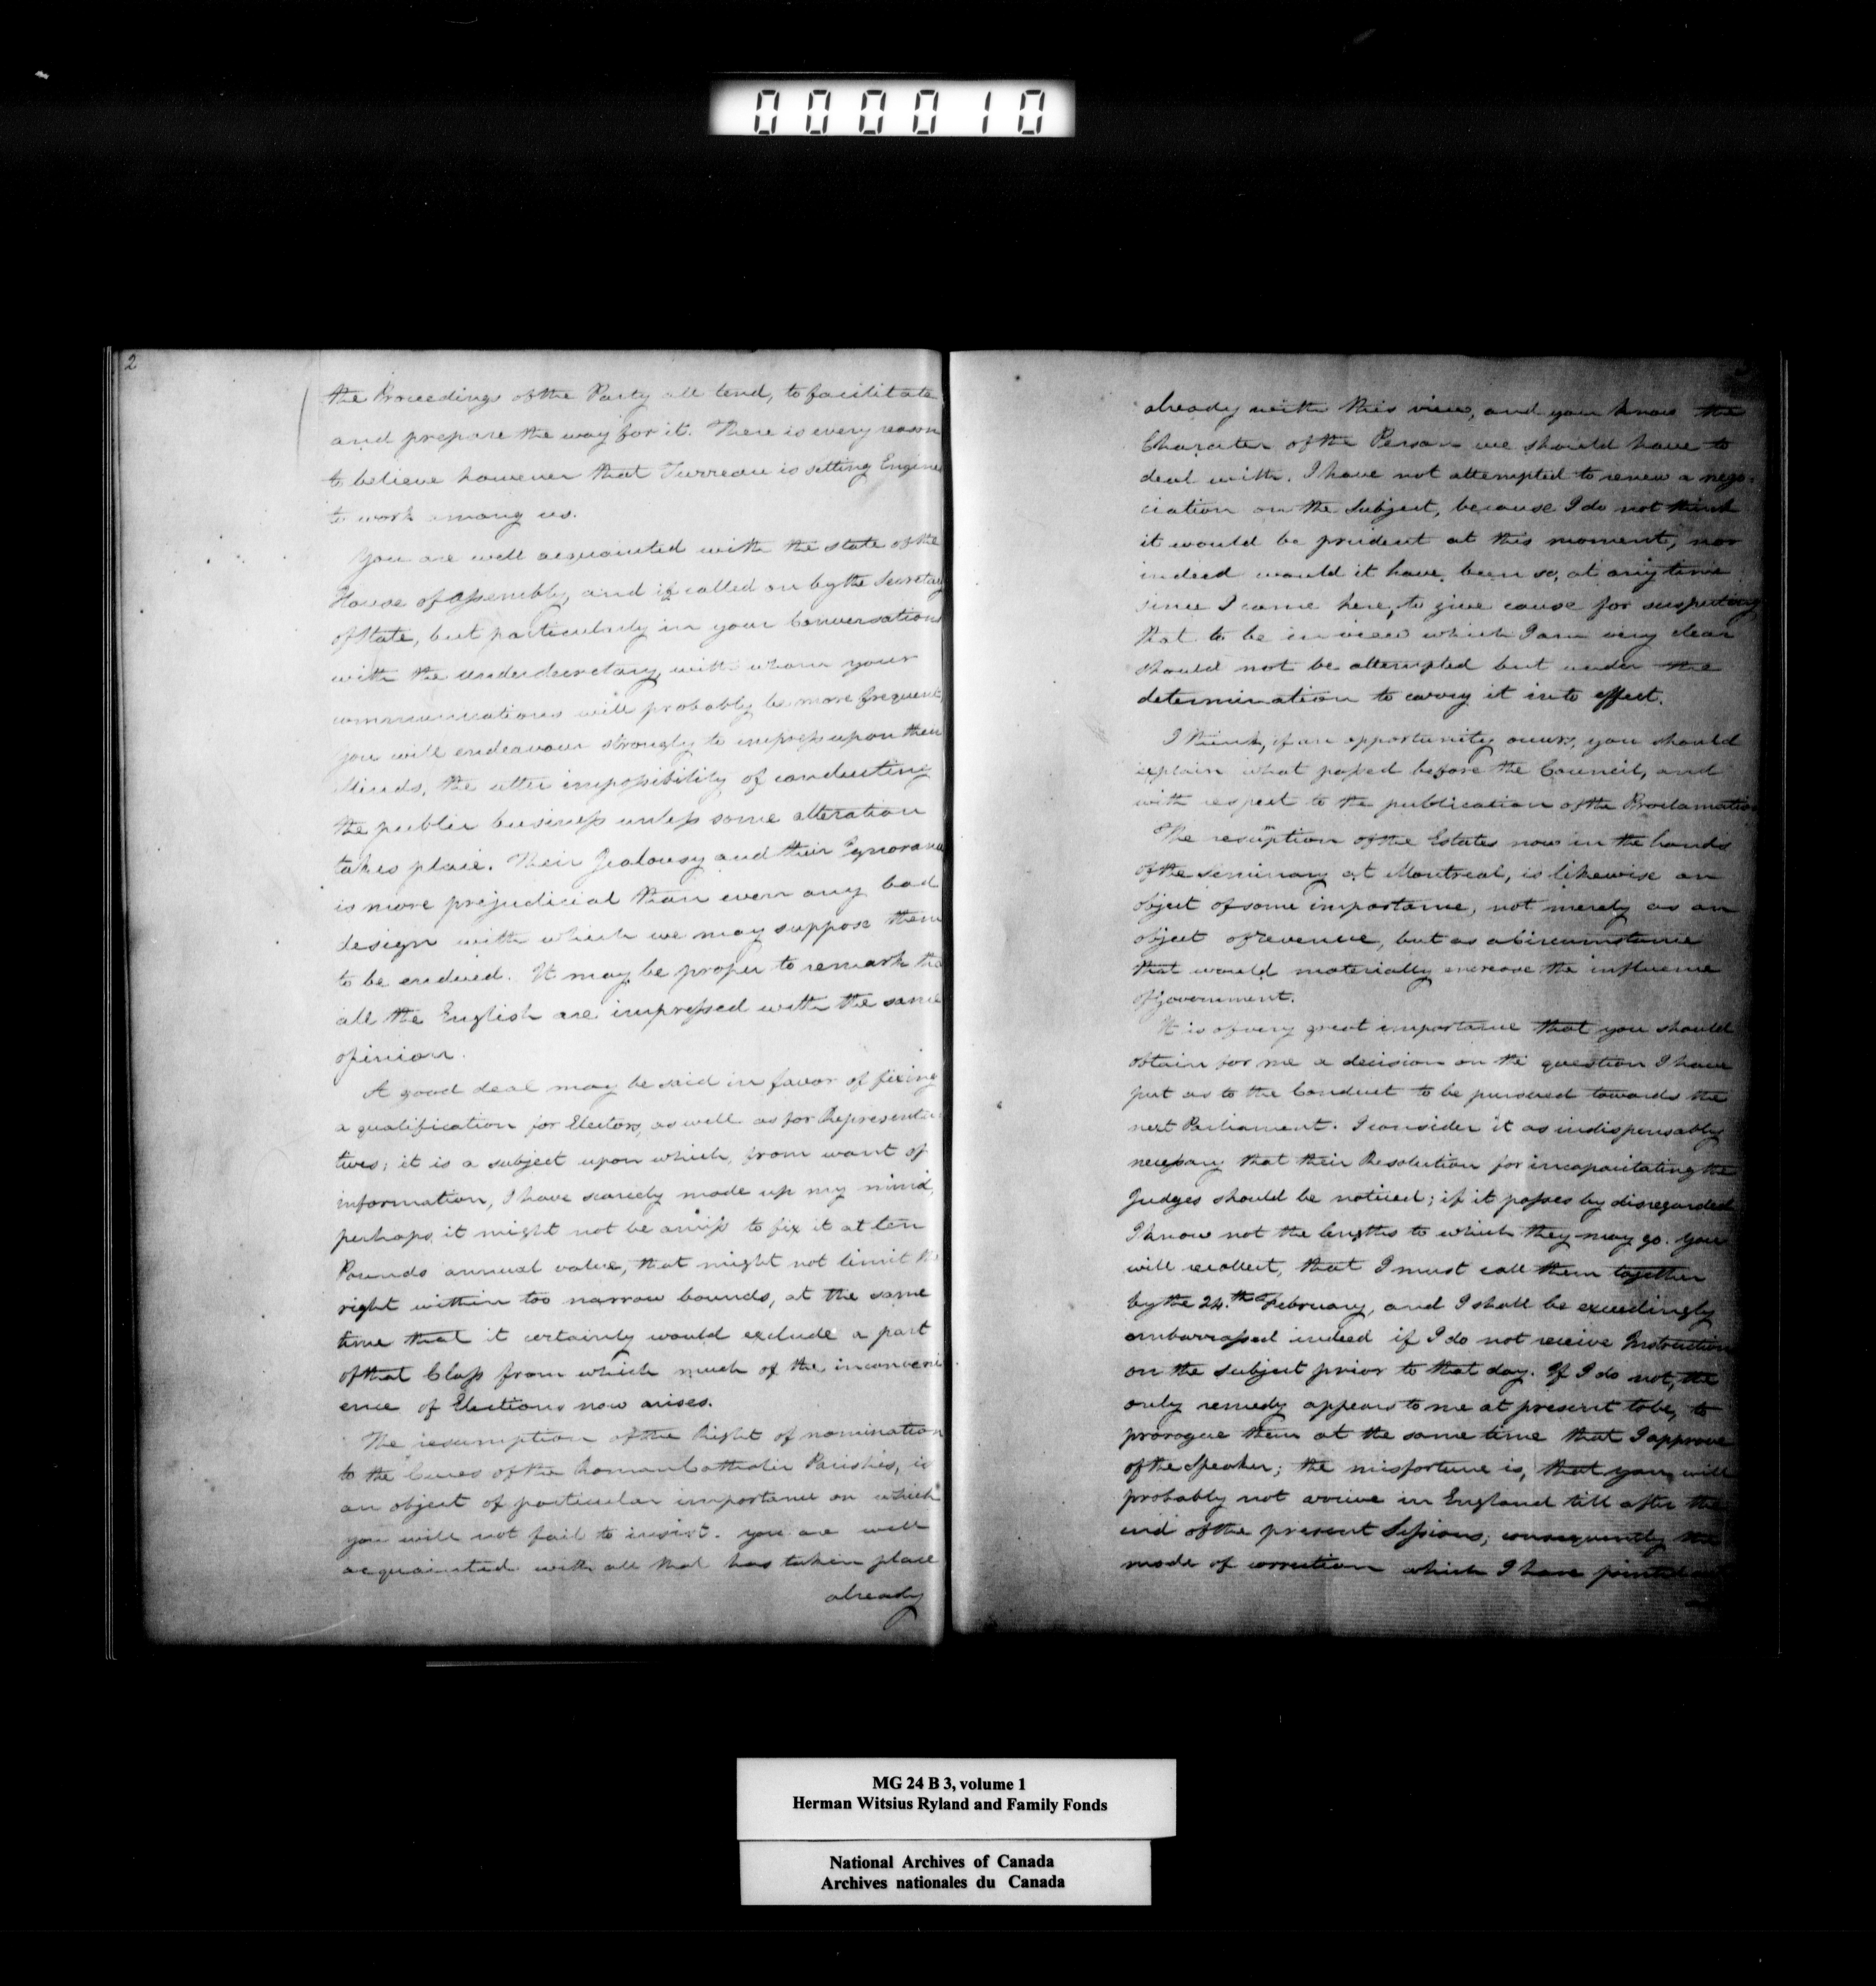 000010
2
the Proceedings of the Party all tend, to facilitate
and prepare the way for it. There is every reason
to believe however that Turreau is setting Engines
to work among us.
You are well acquainted with the state of the
House of Assembly, and if called on by the Secretary
of State, but particularly in your Conversations
with the Undersecretary, with whom your
communications will probably be more frequent,
you will endeavour strongly to impress upon their
Minds, the utter impossibility of conducting
the public business unless some alteration
takes place. Their Jealousy and their Ignorance
is more prejudicial than even any bad
design with which we may suppose them
to be endued. It may be proper to remark that
all the English are impressed with the same
opinion.
A good deal may be said in favor of fixing
a qualification for Electors, as well as for Representa-
tives; it is a subject upon which, from want of
information, I have scarcely made up my mind,
perhaps it might not be amiss to fix it at ten
Pounds annual value, that might not limit the
right within too narrow bounds, at the same
time that it certainly would exclude a part
of that Class from which much of the inconveni
ence of Elections now arises.
The resumption of the Right of nomination
to the Cures of the Roman Catholic Parishes, is
an object of particular importance on which
you will not fail to insist. You are well
acquainted with all that has taken place
already
already with this view, and you know the
Character of the Person we should have to
deal with. I have not attempted to renew a nego-
ciation on the Subject, because I do not think
it would be prudent at this moment, nor
indeed would it have been so, at any time
since I came here, to give cause for suspecting
that to be in view which I am very clear
should not be attempted but under the
determination to carry it into effect.
I think, if an opportunity occurs, you should
explain what passed before the Council, and
with respect to the publication of the Proclamation
The resumption of the Estates now in the hands
of the Seminary at Montreal, is likewise an
object of some importance, not merely as an
object of revenue, but as a Circumstance
that would materially encrease the influence
of Government.
It is of very great importance that you should
obtain for me a decision on the question I have
put as to the Conduct to be pursued towards the
next Parliament. I consider it as indispensably
necessary that their Resolution for incapacitating the
Judges should be noticed; if it passes by disregarded
I know not the lengths to which they may go. You
will recollect, that I must call them together
by the 24.th February, and I shall be exceedingly
embarrassed indeed if I do not receive Instruction
on the subject prior to that day. If I do not, the
only remedy appears to me at present to be, to
prorogue them at the same time that I approve
of the Speaker; the misfortune is, that you will
probably not arrive in England till after the
end of the present Sessions; consequently the
mode of correction which I have pointed
MG 24 B 3, volume 1
Herman Witsius Ryland and Family Fonds
National Archives of Canada
Archives nationales du Canada